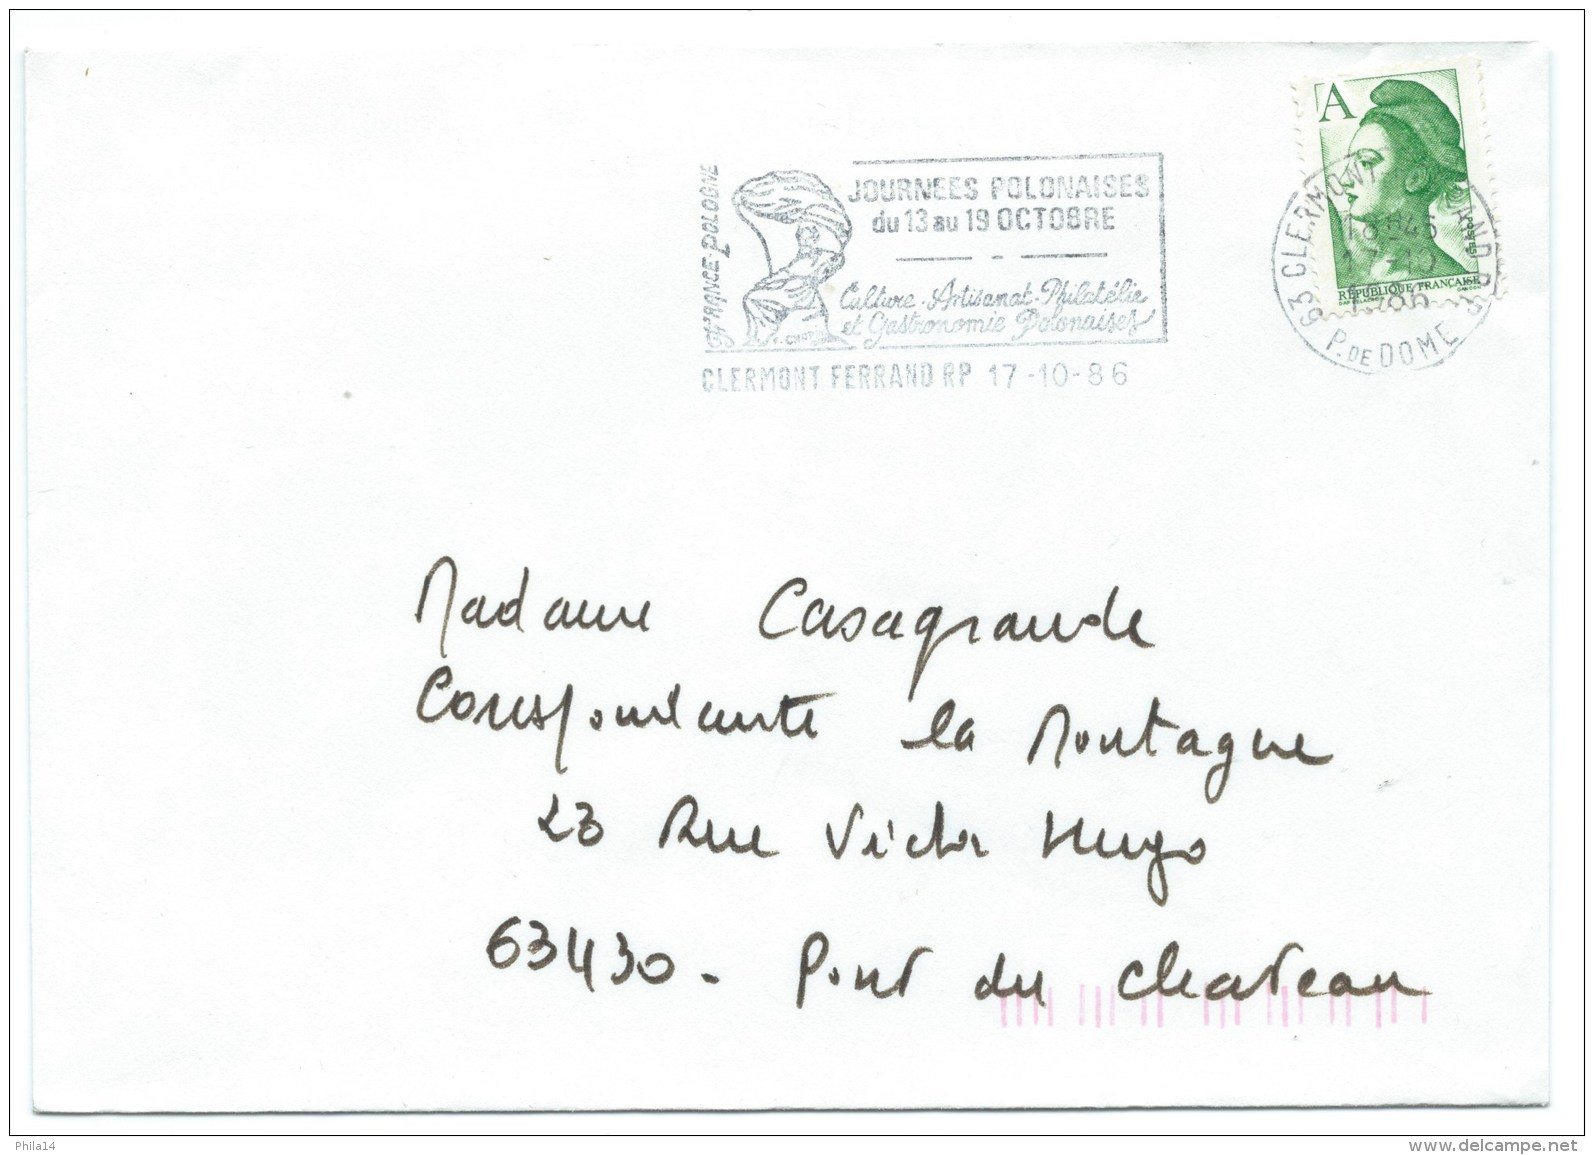 A
RÉPUBLIQUE FRANÇAISE
POSTES
63 CLERMONT
18H45
17-10
1986
P. DE DOME
FRANCE-POLOGNE
JOURNEES POLONAISES
du 13 au 19 OCTOBRE
Culture-Artisanat-Philatélie
et Gastronomie Polonaises
F. CHOPIN
CLERMONT FERRAND RP 17-10-86
Madame Casagrande
Correspondante la Montagne
23 Rue Victor Hugo
63430 - Pont du Chateau
Phila14
www.delcampe.net